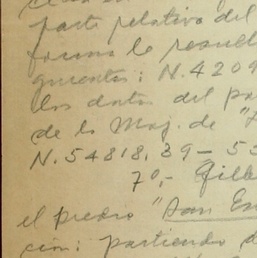 parte relativa del
forma le resuel
guientes: N. 4209
los datos del pa
de la Maj. de "
N. 54818. 39 – 53
7º,- Gilb
el predio "San Es
ción: partiendo d